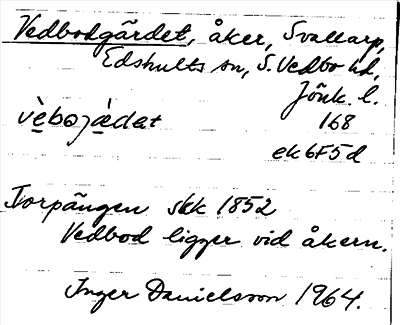 Vedbodgärdet, åker, Svallarp,
Edshults sn, S. Vedbo hd,
Jönk. l.
vèbojàdat
168
ek 6F5d
Torpängen skk 1852
Vedbod ligger vid åkern.
Inger Danielsson 1964.